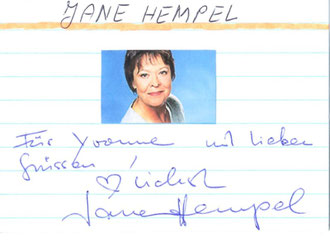 JANE HEMPEL
Für Yvonne mit lieben
Grüssen!
herzlichst
Jane Hempel